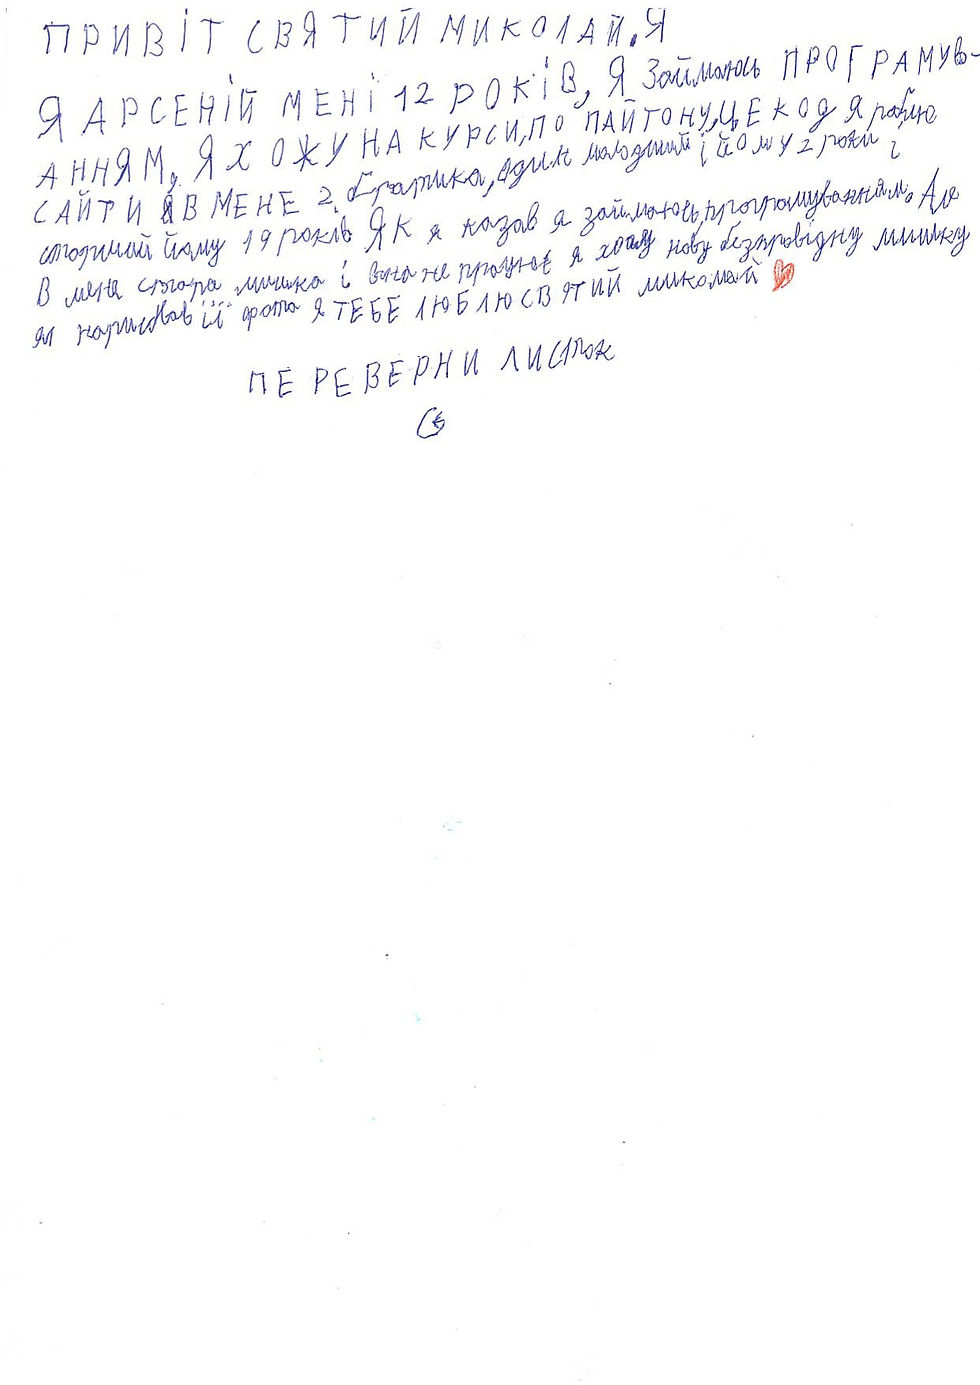 ПРИВІТ СВЯТИЙ МИКОЛАЙ. Я
Я АРСЕНІЙ МЕНІ 12 РОКІВ, Я Займаюсь ПРОГРАМУВ-
АННЯМ, Я ХОЖУ НА КУРСИ, ПО ПАЙТОНУ, ЦЕ КОД Я роблю
САЙТИ Я В МЕНЕ 2 братика, один молодший і йому 2 роки і
старший йому 19 років ЯК я казав я займаюсь, програмуванням. Але
В мене стара мишка і вона не працює я хочу нову безпровідну мишку
я нарисвав її фото Я ТЕБЕ ЛЮБЛЮ СВЯТИЙ миколай
ПЕРЕВЕРНИ листок